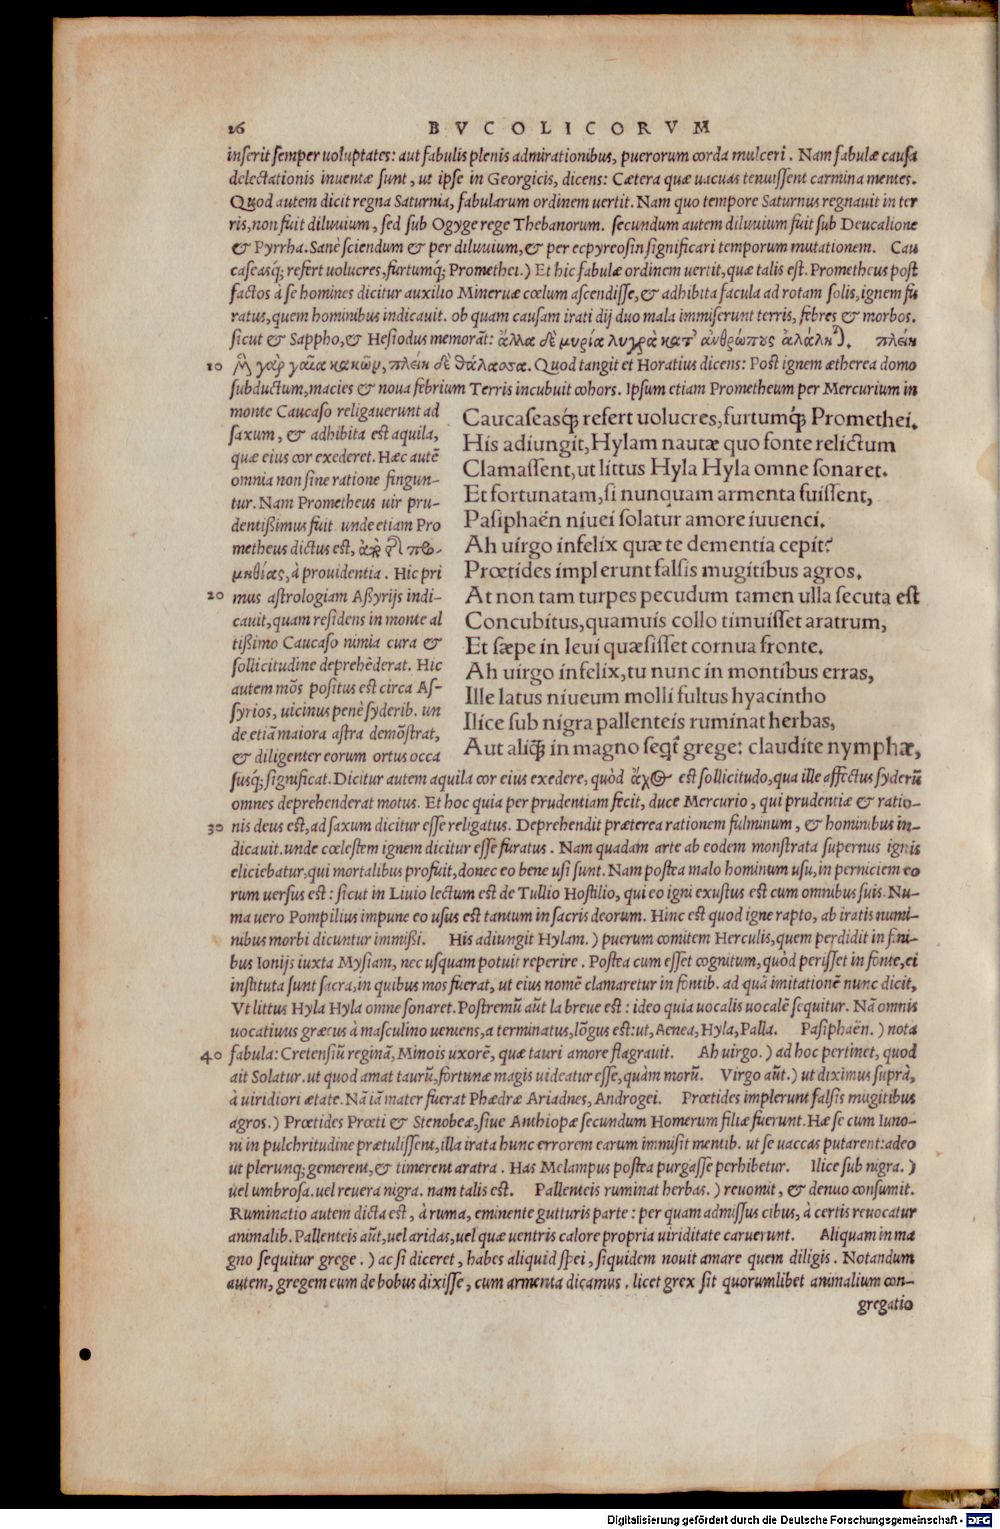 26 BVCOLICORVM
inserit semper uoluptates: aut fabulis plenis admirationibus, puerorum corda mulceri. Nam fabulæ causa
delectationis inuentæ sunt, ut ipse in Georgicis, dicens: Cætera quæ uacuas tenuissent carmina mentes.
Quod autem dicit regna Saturnia, fabularum ordinem uertit. Nam quo tempore Saturnus regnauit in ter
ris, non fuit diluuium, sed sub Ogyge rege Thebanorum. secundum autem diluuium fuit sub Deucalione
& Pyrrha. Sanè sciendum & per diluuium, & per ecpyreosin significari temporum mutationem. Cau
caseasq́; refert uolucres, furtumq́; Promethei.) Et hic fabulæ ordinem uertit, quæ talis est. Prometheus post
factos à se homines dicitur auxilio Mineruæ cœlum ascendisse, & adhibita facula ad rotam solis, ignem fu
ratus, quem hominibus indicauit. ob quam causam irati dij duo mala immiserunt terris, febres & morbos.
sicut & Sappho, & Hesiodus memorāt: ἄλλα δὲ μυρία λυγρὰ κατ' ἀνθρώπους ἀλάληται. πλείη
10 μὲν γὰρ γαῖα κακῶν, πλείη δὲ θάλασσα. Quod tangit et Horatius dicens: Post ignem ætherea domo
subductum, macies & noua febrium Terris incubuit cohors. Ipsum etiam Prometheum per Mercurium in
monte Caucaso religauerunt ad
saxum, & adhibita est aquila,
quæ eius cor exederet. Hæc autē
omnia non sine ratione fingun-
tur. Nam Prometheus uir pru-
dentißimus fuit unde etiam Pro
metheus dictus est, ἀπὸ τῆς προ-
μηθίας, à prouidentia. Hic pri
20 mus astrologiam Aßyrijs indi-
cauit, quam residens in monte al
tißimo Caucaso nimia cura &
sollicitudine deprehēderat. Hic
autem mōs positus est circa As-
syrios, uicinus penè syderib. un
de etiā maiora astra demōstrat,
& diligenter eorum ortus occa
Caucaseasq́; refert uolucres, furtumq́; Promethei.
His adiungit, Hylam nautæ quo fonte relictum
Clamassent, ut littus Hyla Hyla omne sonaret.
Et fortunatam, si nunquam armenta fuissent,
Pasiphaën niuei solatur amore iuuenci.
Ah uirgo infelix quæ te dementia cepit?
Prœtides implerunt falsis mugitibus agros.
At non tam turpes pecudum tamen ulla secuta est
Concubitus, quamuis collo timuisset aratrum,
Et sæpe in leui quæsisset cornua fronte.
Ah uirgo infelix, tu nunc in montibus erras,
Ille latus niueum molli fultus hyacintho
Ilice sub nigra pallenteis ruminat herbas,
Aut aliq̄ in magno seqt̄ grege: claudite nymphæ,
susq́; significat. Dicitur autem aquila cor eius exedere, quòd ἄχος est sollicitudo, qua ille affectus syderū
omnes deprehenderat motus. Et hoc quia per prudentiam fecit, duce Mercurio, qui prudentiæ & ratio-
30 nis deus est, ad saxum dicitur esse religatus. Deprehendit præterea rationem fulminum, & hominibus in-
dicauit. unde cœlestem ignem dicitur esse furatus. Nam quadam arte ab eodem monstrata supernus ignis
eliciebatur, qui mortalibus profuit, donec eo bene usi sunt. Nam postea malo hominum usu, in perniciem eo
rum uersus est: sicut in Liuio lectum est de Tullio Hostilio, qui eo igni exustus est cum omnibus suis. Nu-
ma uero Pompilius impune eo usus est tantum in sacris deorum. Hinc est quod igne rapto, ab iratis numi-
nibus morbi dicuntur immißi. His adiungit Hylam.) puerum comitem Herculis, quem perdidit in fini-
bus Ionijs iuxta Mysiam, nec usquam potuit reperire. Postea cum esset cognitum, quòd perisset in fonte, ei
instituta sunt sacra, in quibus mos fuerat, ut eius nomē clamaretur in fontib. ad quā imitationē nunc dicit,
Vt littus Hyla Hyla omne sonaret. Postremū aūt la breue est: ideo quia uocalis uocalē sequitur. Nā omnis
uocatiuus græcus à masculino ueniens, a terminatus, lōgus est: ut, Aenea, Hyla, Palla. Pasiphaën.) nota
40 fabula: Cretensiū reginā, Minois uxorē, quæ tauri amore flagrauit. Ah uirgo.) ad hoc pertinet, quod
ait Solatur. ut quod amat taurū, fortunæ magis uideatur esse, quàm morū. Virgo aūt.) ut diximus suprà,
à uiridiori ætate. Nā iā mater fuerat Phædræ Ariadnes, Androgei. Prœtides implerunt falsis mugitibus
agros.) Prœtides Prœti & Stenobeæ, siue Anthiopæ secundum Homerum filiæ fuerunt. Hæ se cum Iuno-
ni in pulchritudine prætulissent, illa irata hunc errorem earum immisit mentib. ut se uaccas putarent: adeo
ut plerunq; gemerent, & timerent aratra. Has Melampus postea purgasse perhibetur. Ilice sub nigra.)
uel umbrosa. uel reuera nigra. nam talis est. Pallenteis ruminat herbas.) reuomit, & denuo consumit.
Ruminatio autem dicta est, à ruma, eminente gutturis parte: per quam admissus cibus, à certis reuocatur
animalib. Pallenteis aūt, uel aridas, uel quæ uentris calore propria uiriditate caruerunt. Aliquam in ma
gno sequitur grege.) ac si diceret, habes aliquid spei, siquidem nouit amare quem diligis. Notandum
autem, gregem eum de bobus dixisse, cum armenta dicamus. licet grex sit quorumlibet animalium con-
gregatio
Digitalisierung gefördert durch die Deutsche Forschungsgemeinschaft - DFG